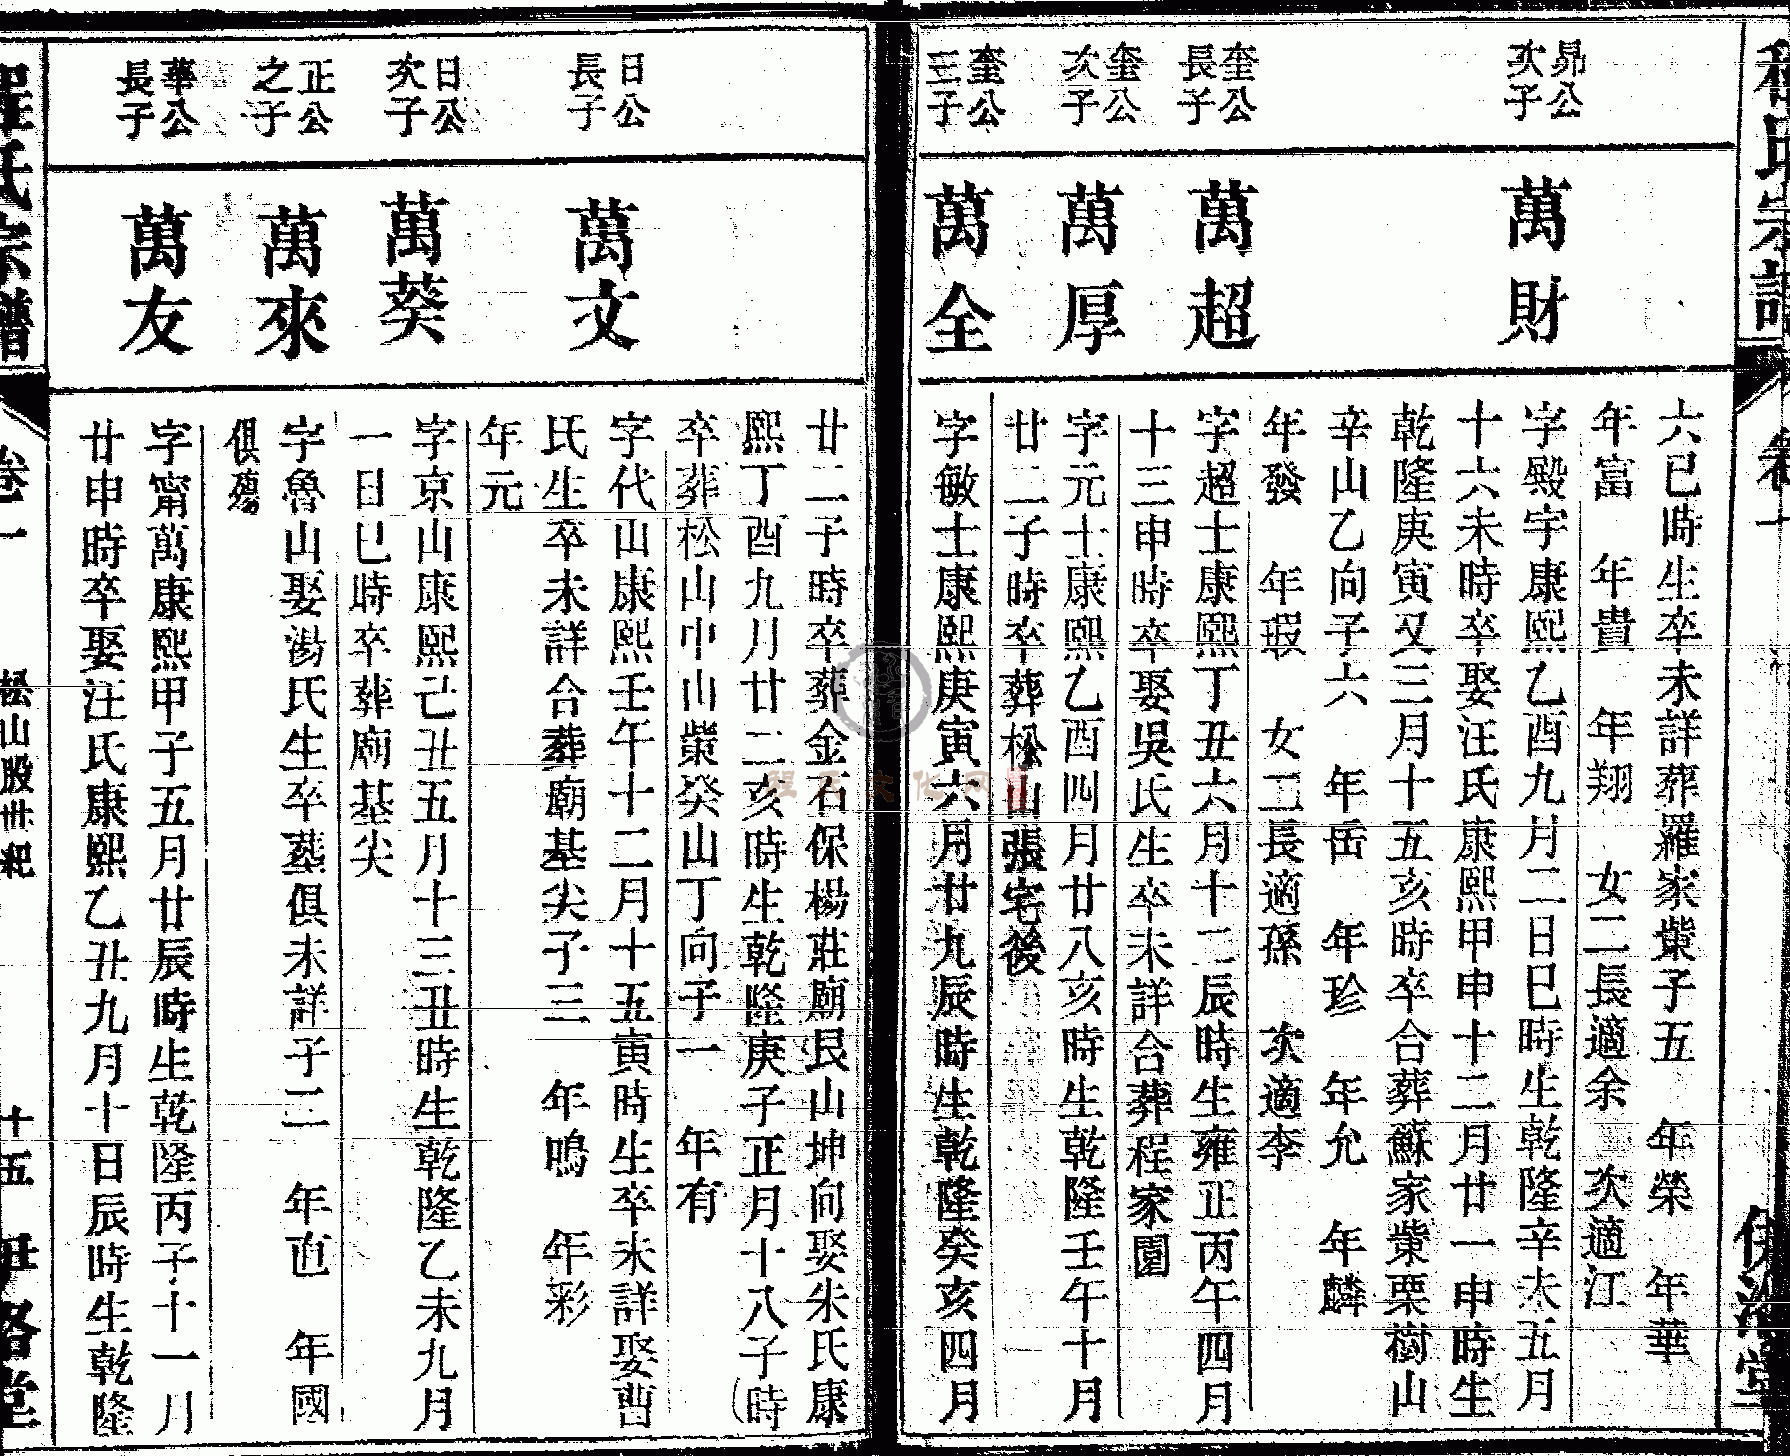 程氏宗譜
卷十
伊洛堂
六巳時生卒未詳葬羅家葉子五 年榮 年華
年富 年貴 年翔 女二長適余 次適江
昴公次子
萬財
字殿宇康熙乙酉九月二日巳時生乾隆辛未五月
十六未時卒娶汪氏康熙甲申十二月廿一申時生
乾隆庚寅又三月十五亥時卒合葬蘇家柴栗樹山
辛山乙向子六 年岳 年珍 年允 年麟
年發 年瑕 女二長適孫 次適李
奎公長子
萬超
字超士康熙丁丑六月十二辰時生雍正丙午四月
十三申時卒娶吳氏生卒未詳合葬程家園
奎公次子
萬厚
字元士康熙乙酉四月廿八亥時生乾隆壬午十月
廿二子時卒葬松山張宅後
奎公三子
萬全
字敏士康熙庚寅六月廿九辰時生乾隆癸亥四月
廿二子時卒葬金石保楊莊廟艮山坤向娶朱氏康
熙丁酉九月廿二亥時生乾隆庚子正月十八子時
卒葬松山中山柴癸山丁向子一 年有
日公長子
萬文
字代山康熙壬午十二月十五寅時生卒未詳娶曹
氏生卒未詳合葬廟基尖子三 年鳴 年彩
年元
日公次子
萬葵
字京山康熙己丑五月十三丑時生乾隆乙未九月
一日巳時卒葬廟基尖
正公之子
萬來
字魯山娶湯氏生卒墓俱未詳子二 年直 年國
俱殤
華公長子
萬友
字甯萬康熙甲子五月廿辰時生乾隆丙子十一月
廿申時卒娶汪氏康熙乙丑九月十日辰時生乾隆
程氏宗譜
卷一
松山股世紀
十五
伊洛堂